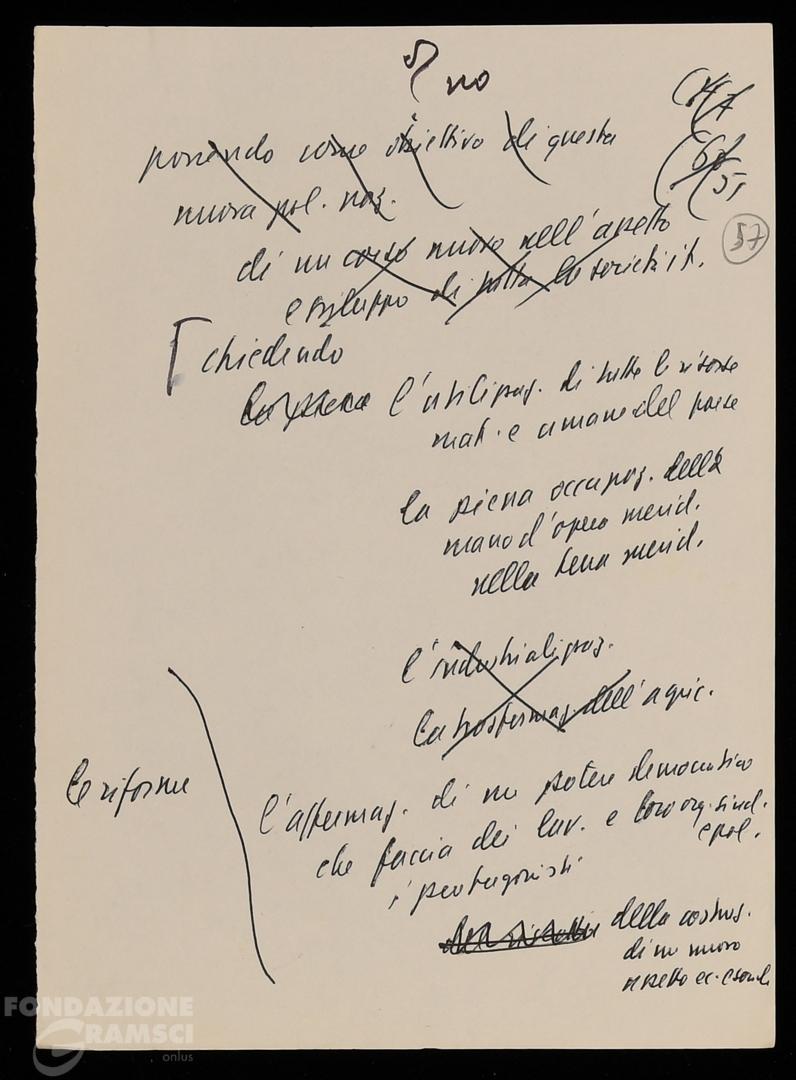 no
57
51
ponendo come obiettivo di questa
nuova pol. naz.
di un corso nuovo nell'assetto
e sviluppo di tutta la società it.
chiedendo
l'utilizzaz. di tutte le risorse
mat. e umane del paese
la piena occupaz. della
mano d'opera merid.
nella terra merid.
l'industrializzaz.
la trasformaz. dell'agric.
le riforme
l'affermaz. di un potere democratico
che faccia dei lav. e loro org. sind.
e pol.
i protagonisti
della costruz.
di un nuovo
assetto ec. e sociale
FONDAZIONE
GRAMSCI
onlus